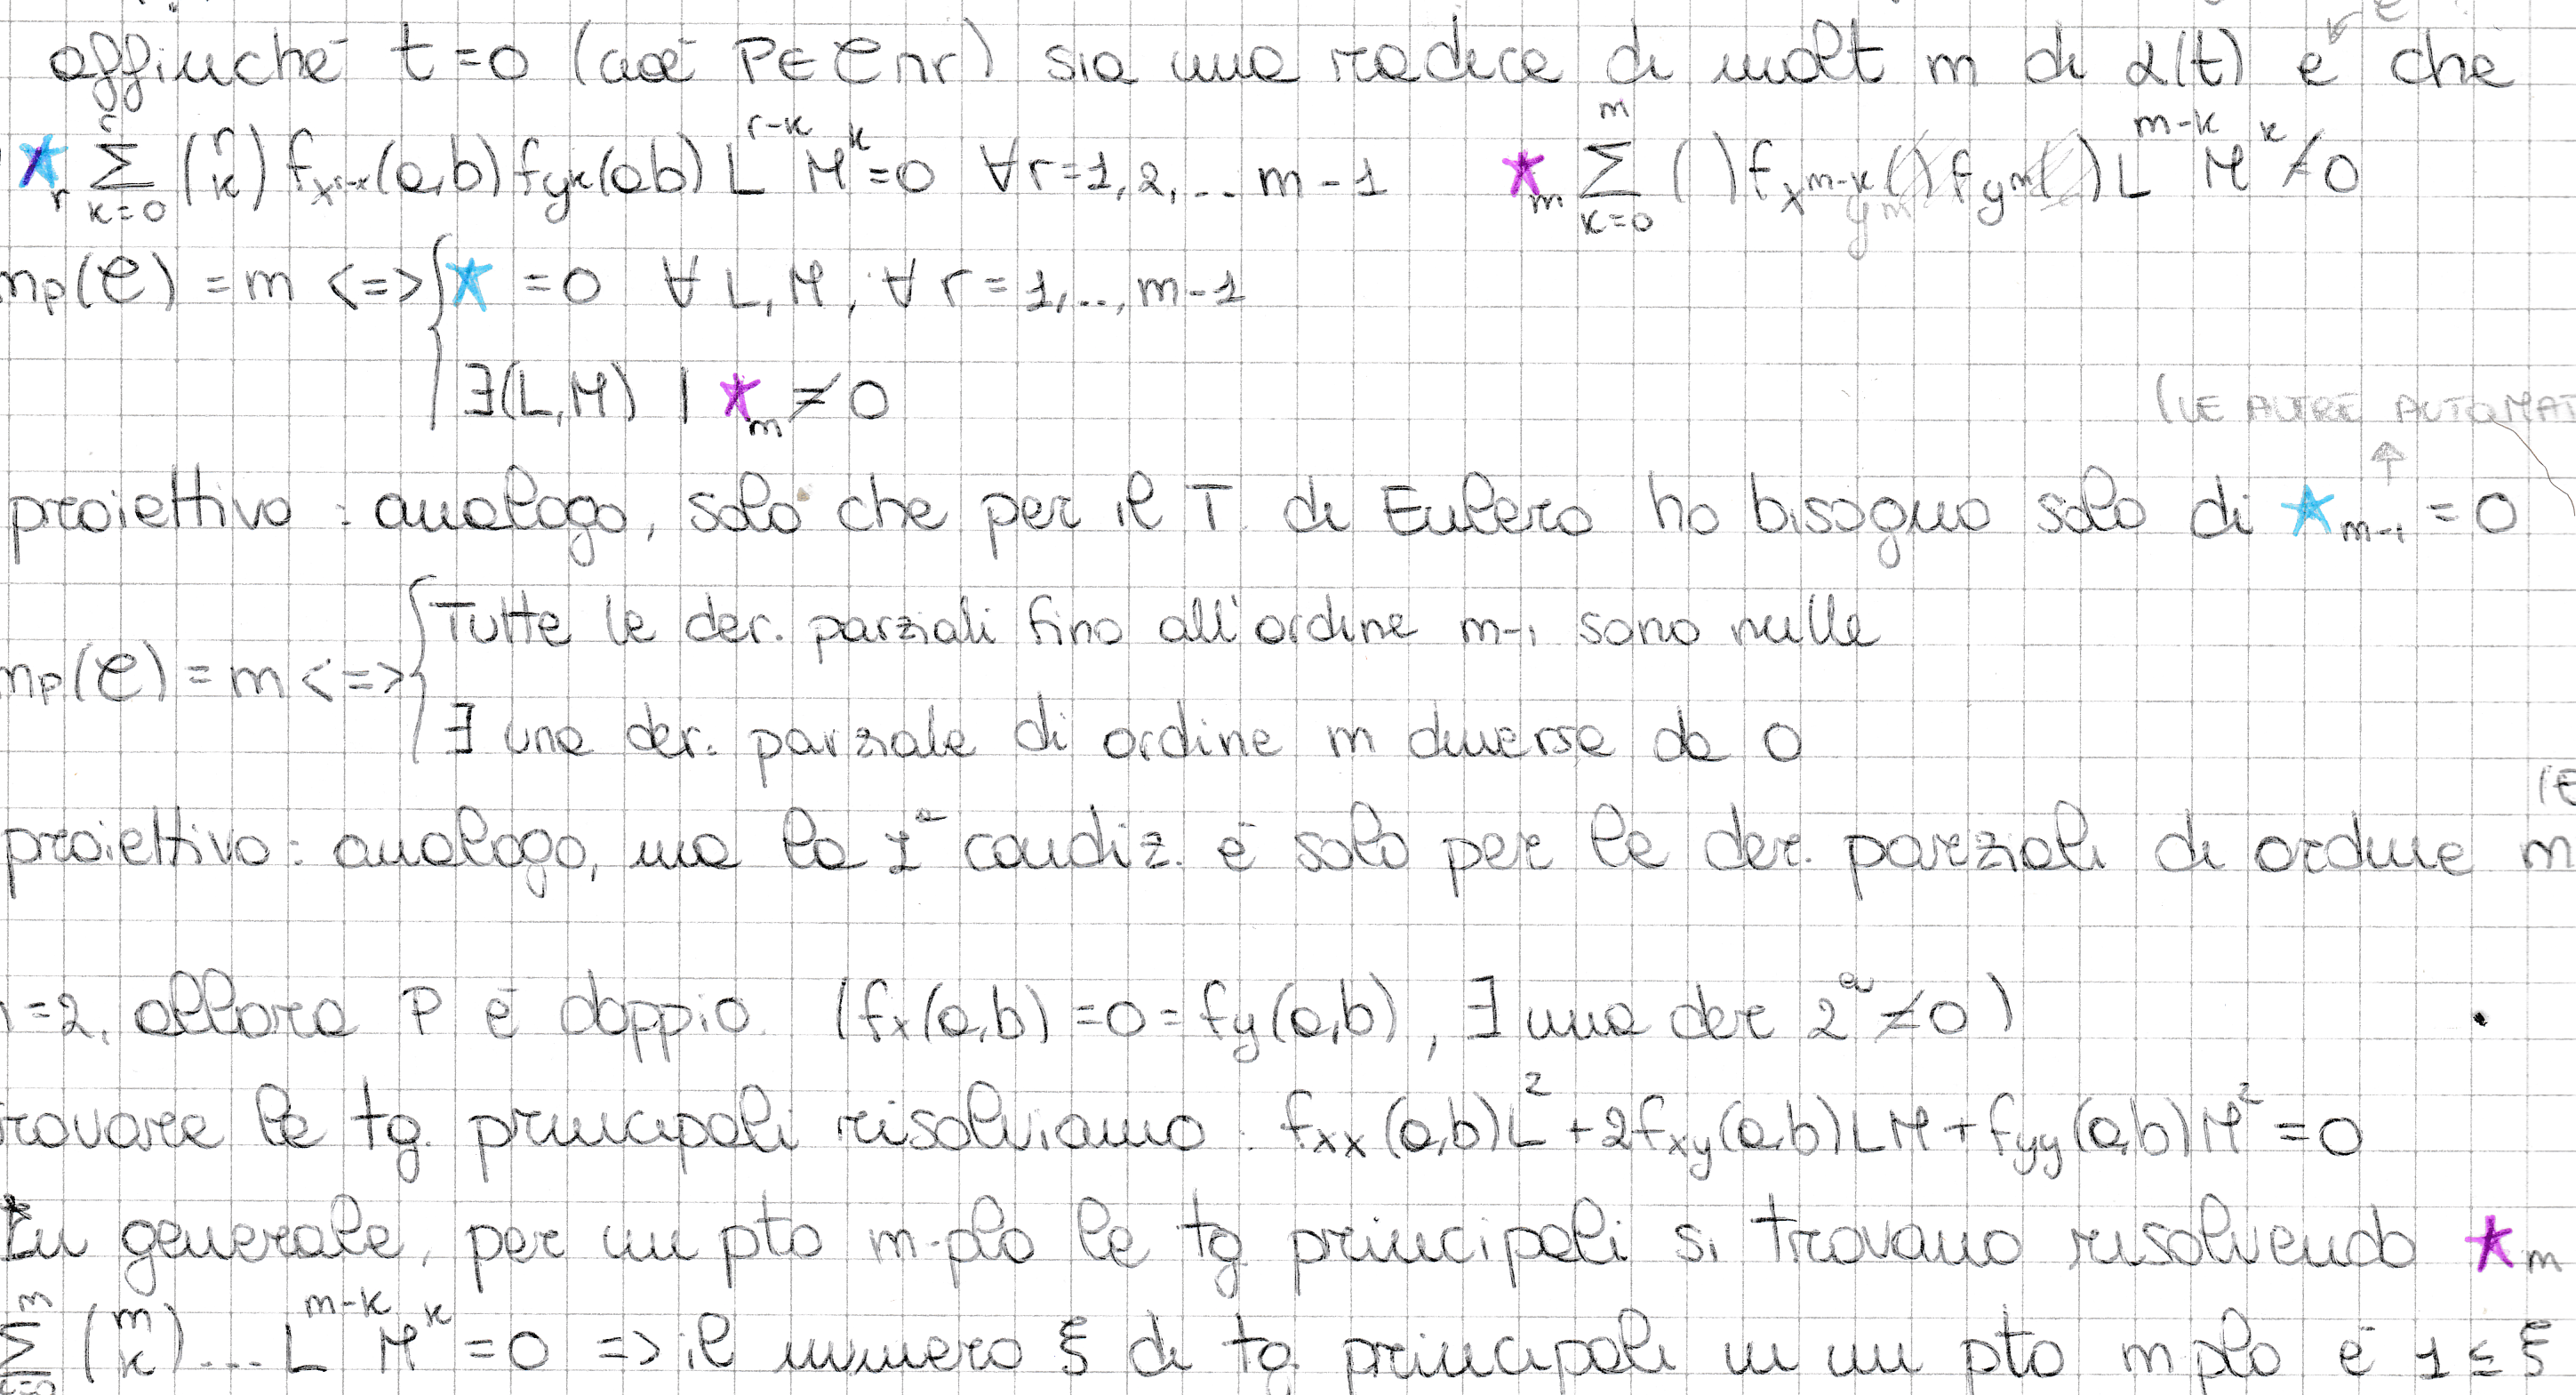 affinché t=0 (cioè P∈C∩r) sia una radice di molt m di α(t) è che
★_r ∑_{k=0}^{r} (r k) f_{x^{r-k}}(a,b) f_{y^k}(a,b) L^{r-k} M^k = 0 ∀r=1,2,... m-1 ★_m ∑_{k=0}^{m} ( ) f_{x^{m-k}}( ) f_{y^m}( ) L^{m-k} M^k ≠ 0
m_P(C) = m <=> { ★ = 0 ∀ L,M, ∀ r = 1,..,m-1
∃(L,M) | ★_m ≠ 0
(LE ALTRE AUTOMAT
proiettivo: analogo, solo che per il T. di Eulero ho bisogno solo di ★_{m-1} = 0
m_P(C) = m <=> { Tutte le der. parziali fino all'ordine m-1 sono nulle
∃ una der. parziale di ordine m diversa da 0
proiettivo: analogo, ma la 1ª condiz. è solo per le der. parziali di ordine m
=2, allora P è doppio (f_x(a,b)=0=f_y(a,b), ∃ una der 2ª ≠0)
rovare le tg. principali risolviamo: f_{xx}(a,b)L²+2f_{xy}(a,b)LM+f_{yy}(a,b)M²=0
In generale, per un pto m-plo le tg principali si trovano risolvendo ★_m
∑^{m} (m k) .... L^{m-k} M^k = 0 => il numero ξ di tg. principali in un pto m plo è 1 ≤ ξ